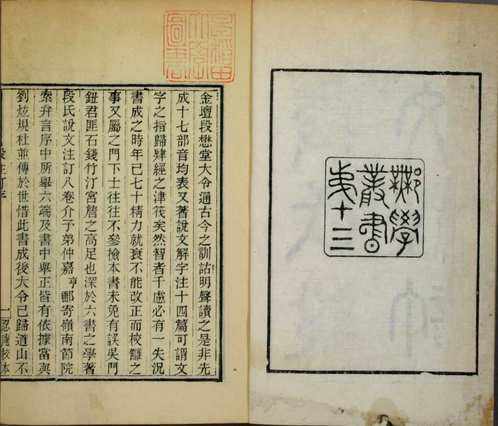 鄦學
叢書
弟十三
金壇段懋堂大令通古今之訓詁明聲讀之是非先
成十七部音均表又著說文解字注十四篇可謂文
字之指歸肄經之津筏矣然智者千慮必有一失况
書成之時年已七十精力就衰不能改正而校讎之
事又屬之門下士往往不參檢本書未免有誤吳門
鈕君匪石錢竹汀宮詹之高足也深於六書之學著
段氏說文注訂八卷介子弟仲嘉亨郵寄嶺南節院
索弁言序中所舉六端及書中舉正皆有依據當與
劉炫規杜並傳於世惜此書成後大令已歸道山不